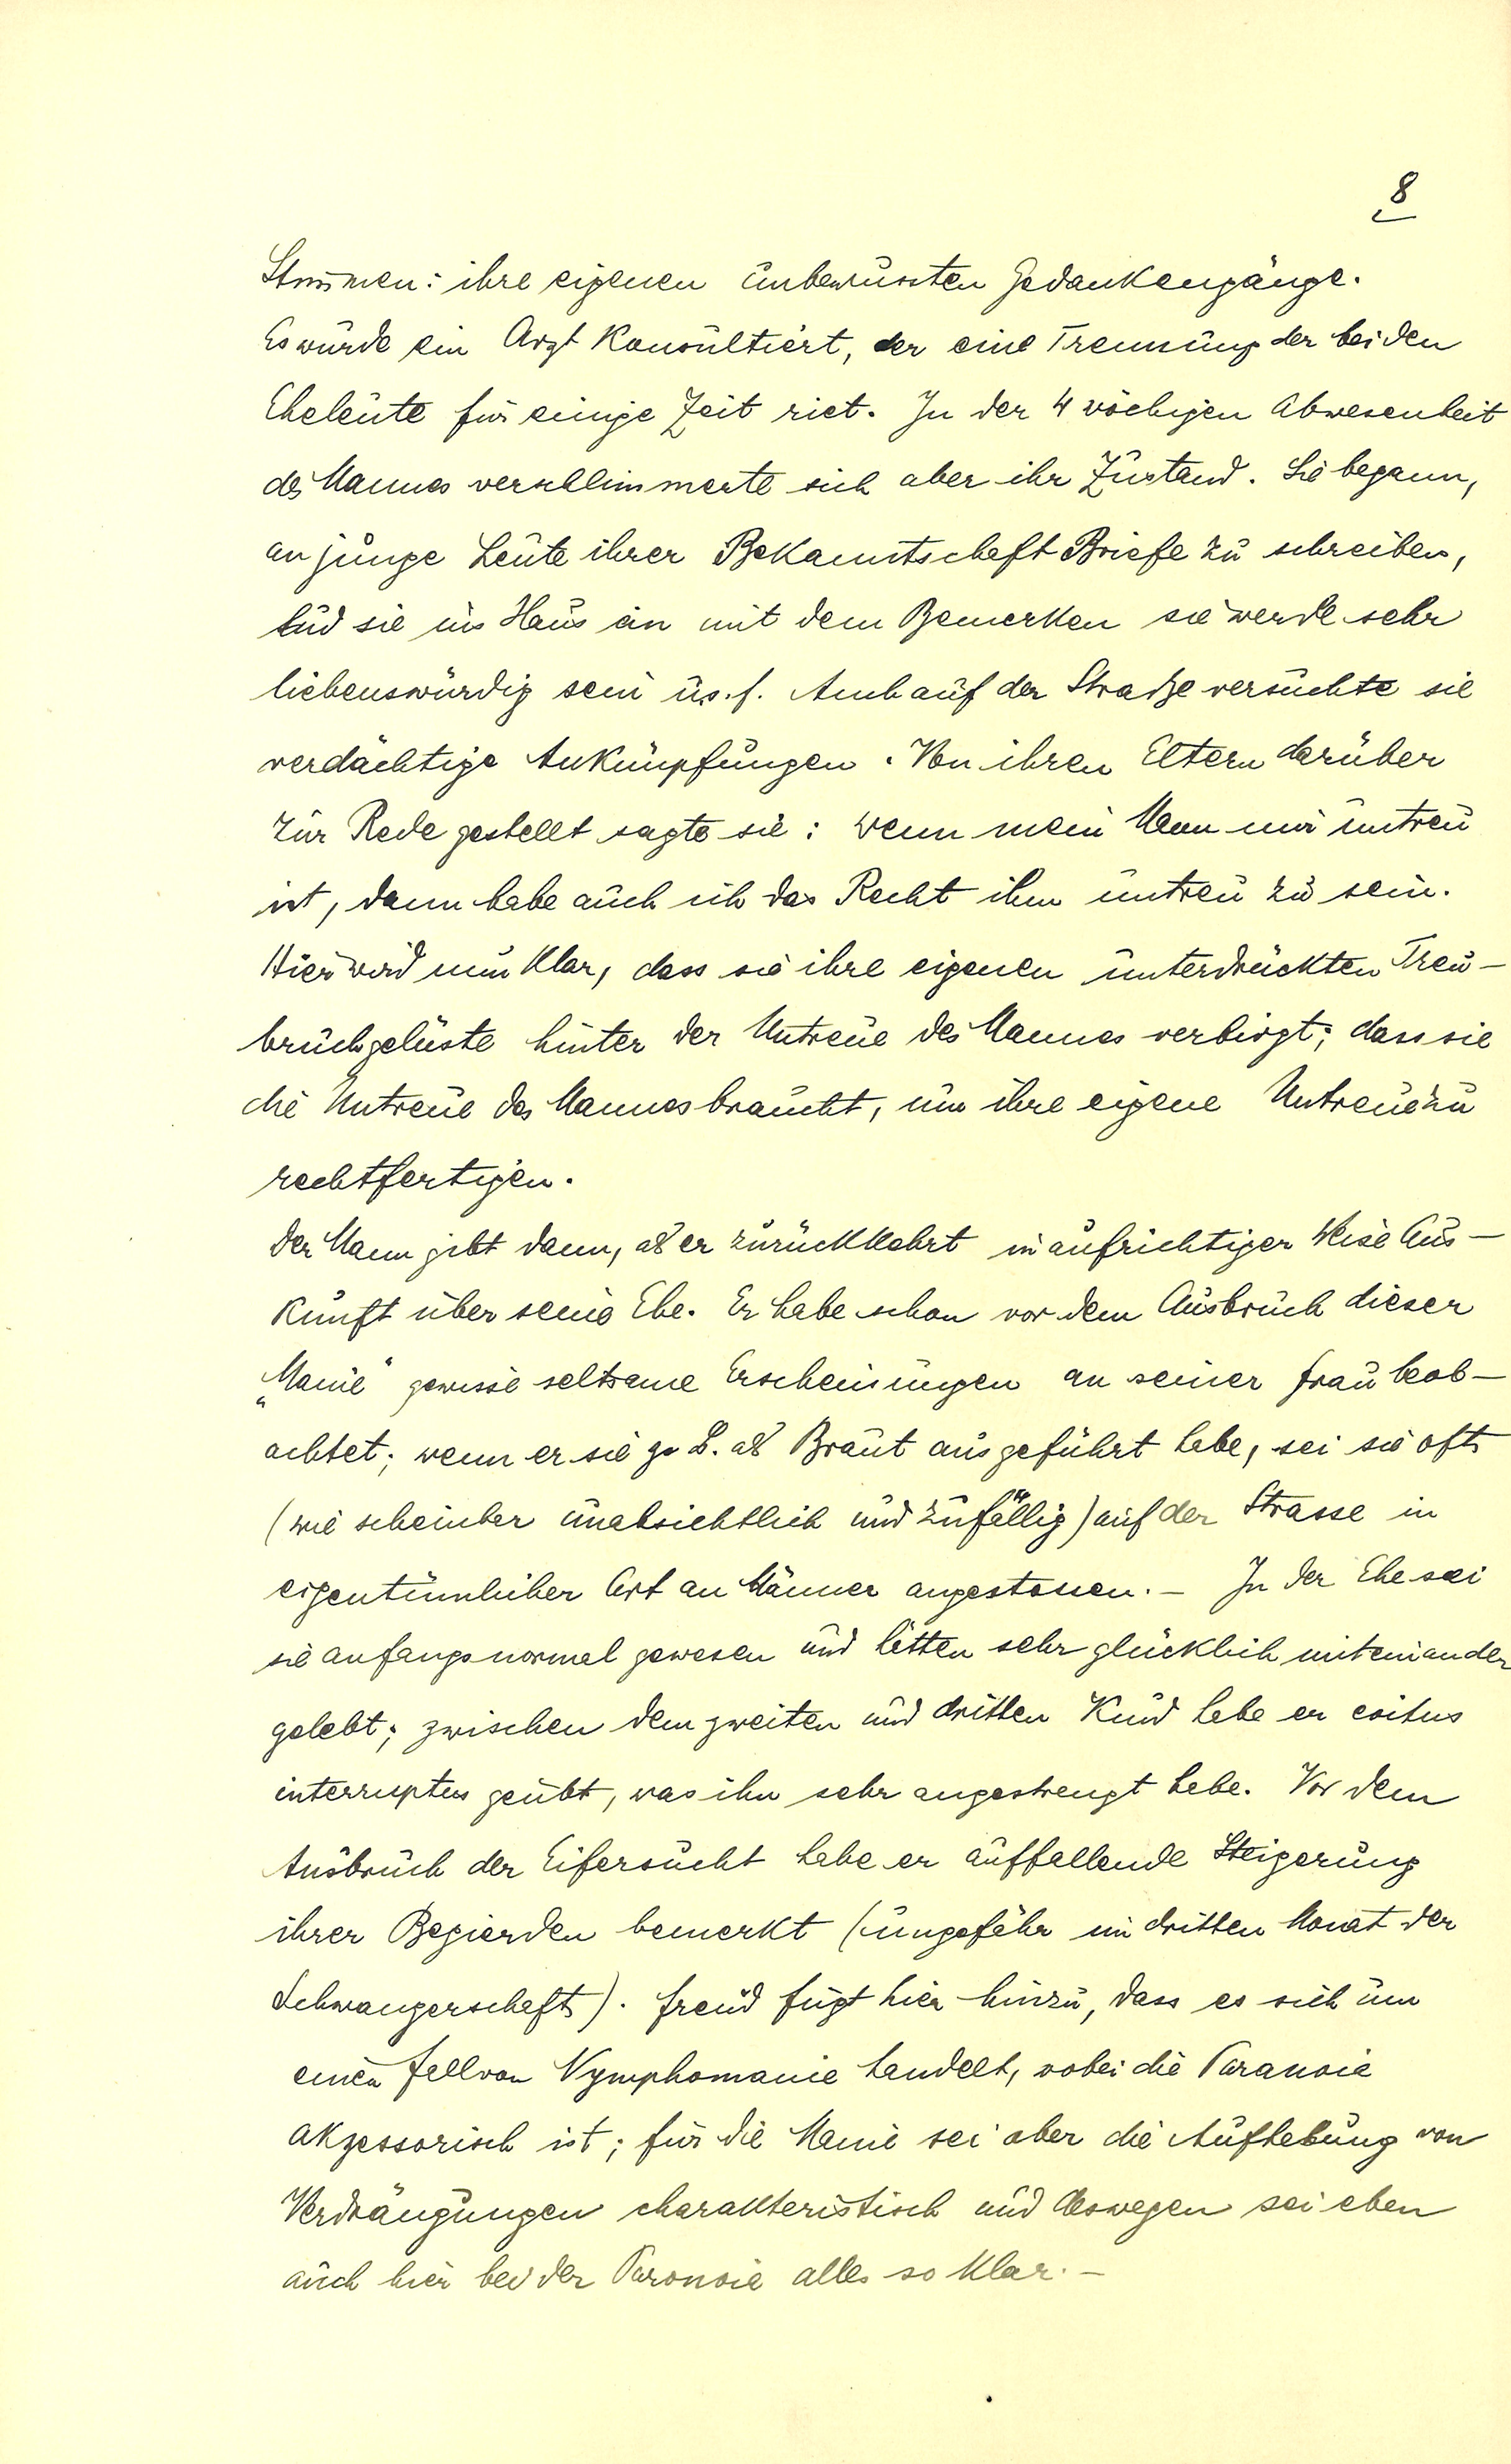 8
Stimmen: ihre eigenen unbewussten Gedankengänge.
Es wurde ein Arzt konsultiert, der eine Trennung der beiden
Eheleute für einige Zeit riet. In der 4 wöchigen Abwesenheit
des Mannes verschlimmerte sich aber ihr Zustand. Sie begann,
an junge Leute ihrer Bekanntschaft Briefe zu schreiben,
lud sie ins Haus ein mit dem Bemerken sie werde sehr
liebenswürdig sein u.s.f. Auch auf der Straße versuchte sie
verdächtige Anknüpfungen. Von ihren Eltern darüber
zur Rede gestellt sagte sie: wenn mein Mann mir untreu
ist, dann habe auch ich das Recht ihm untreu zu sein.
Hier wird nun klar, dass sie ihre eigenen unterdrückten Treu-
bruchgelüste hinter der Untreue des Mannes verbirgt; dass sie
die Untreue des Mannes braucht, um ihre eigene Untreue zu
rechtfertigen.
Der Mann gibt dann, als er zurückkehrt in aufrichtiger Weise Aus-
kunft über seine Ehe. Er habe schon vor dem Ausbruch dieser
„Manie“ gewisse seltsame Erscheinungen an seiner Frau beob-
achtet; wenn er sie z. B. als Braut ausgeführt habe, sei sie oft
(wie scheinbar unabsichtlich und zufällig) auf der Strasse in
eigentümlicher Art an Männer angestossen. - In der Ehe sei
sie anfangs normal gewesen und hätten sehr glücklich miteinander
gelebt; zwischen dem zweiten und dritten Kind habe er coitus
interruptus geübt, was ihn sehr angestrengt habe. Vor dem
Ausbruch der Eifersucht habe er auffallende Steigerung
ihrer Begierden bemerkt (ungefähr im dritten Monat der
Schwangerschaft). Freud fügt hier hinzu, dass es sich um
einen Fall von Nymphomanie handelt, wobei die Paranoia
akzessorisch ist; für die Manie sei aber die Aufhebung von
Verdrängungen charakteristisch und deswegen sei eben
auch hier bei der Paranoia alles so klar. -